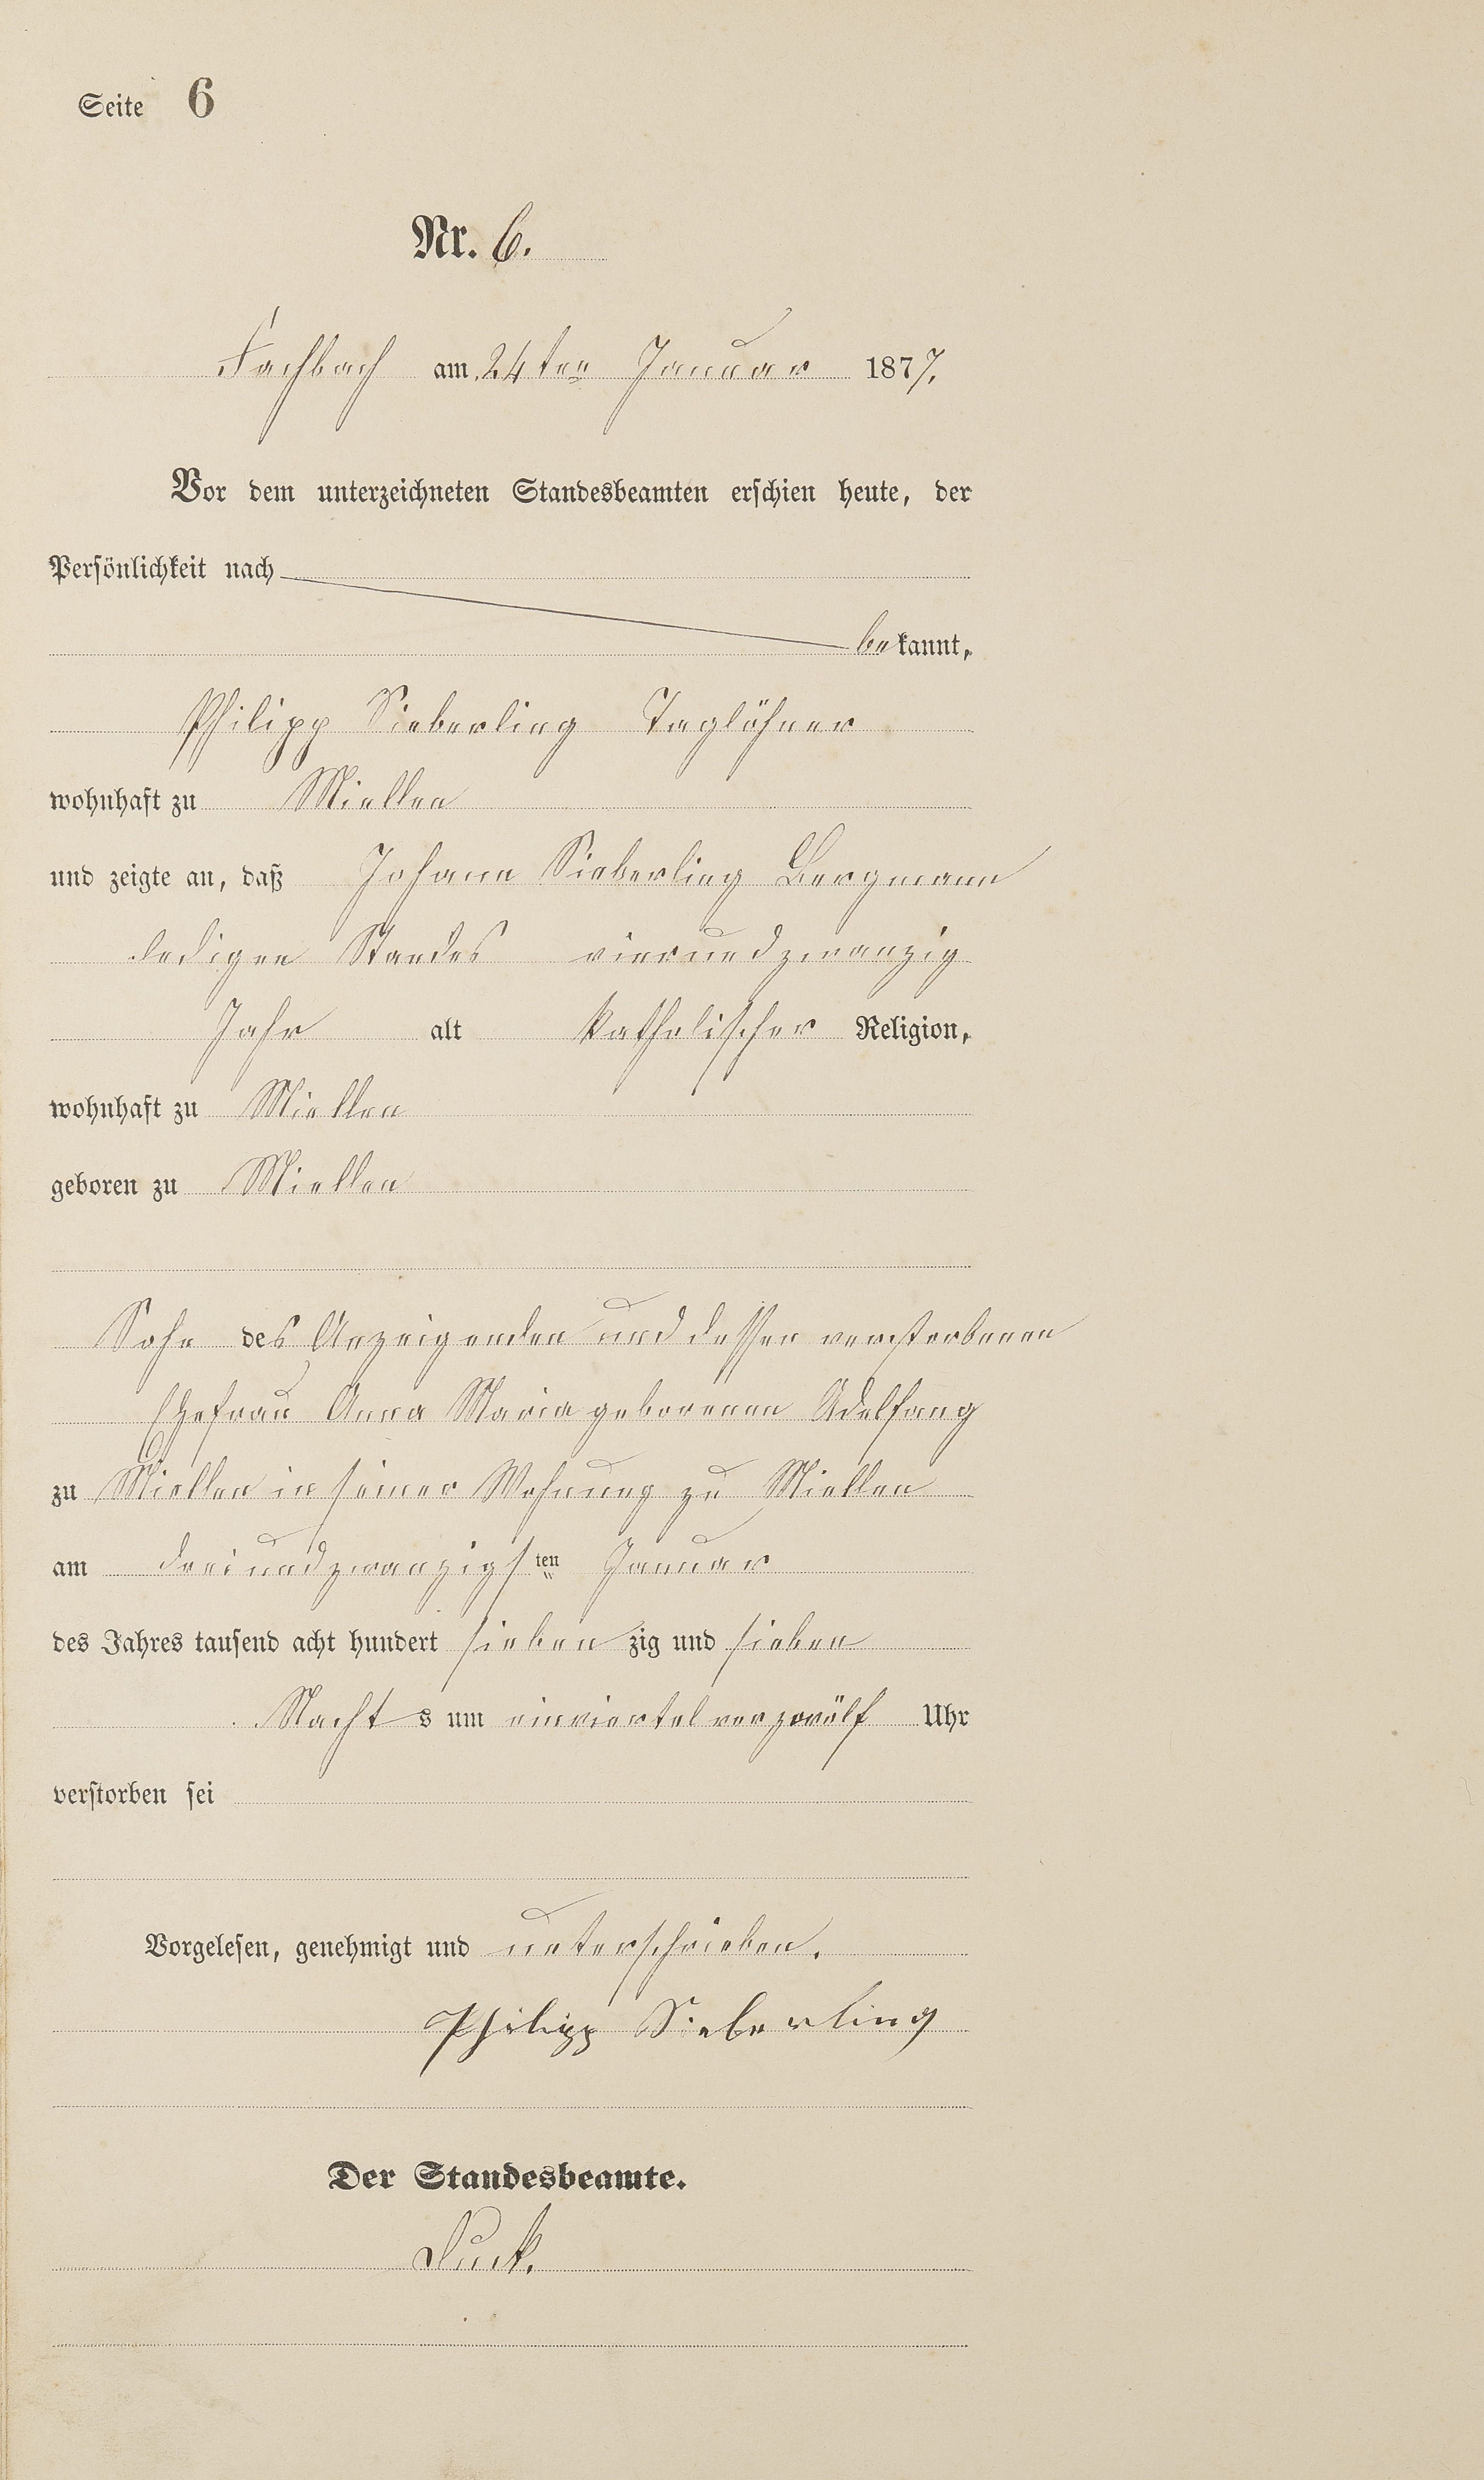 Seite 6
Nr. 6.
Fachbach am 24ten Januar 1877.
Vor dem unterzeichneten Standesbeamten erschien heute, der
Persönlichkeit nach
bekannt,
Philipp Sieberling Taglöhner
wohnhaft zu Miellen
und zeigte an, daß Johann Sieberling Bergmann
ledigen Standes vierundzwanzig
Jahr alt katholischer Religion,
wohnhaft zu Miellen
geboren zu Miellen
Sohn des Anzeigenden und dessen verstorbenen
Ehefrau Anna Maria geborenen Adelfang
zu Miellen in seiner Wohnung zu Miellen
am dreiundzwanzigsten Januar
des Jahres tausend acht hundert sieben zig und sieben
Nachts um einviertel vor zwölf Uhr
verstorben sei
Vorgelesen, genehmigt und unterschrieben.
Philipp Sieberling
Der Standesbeamte.